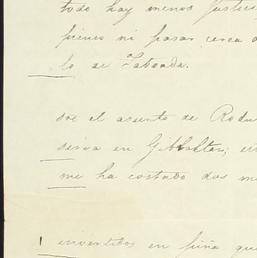 todo hay menos justici
pienso ni pasar cerca d
lo de Taboada.
dre el asunto de Rodu
seiva en Gibraltar; en
me ha costado dos m
invertidos en piña que